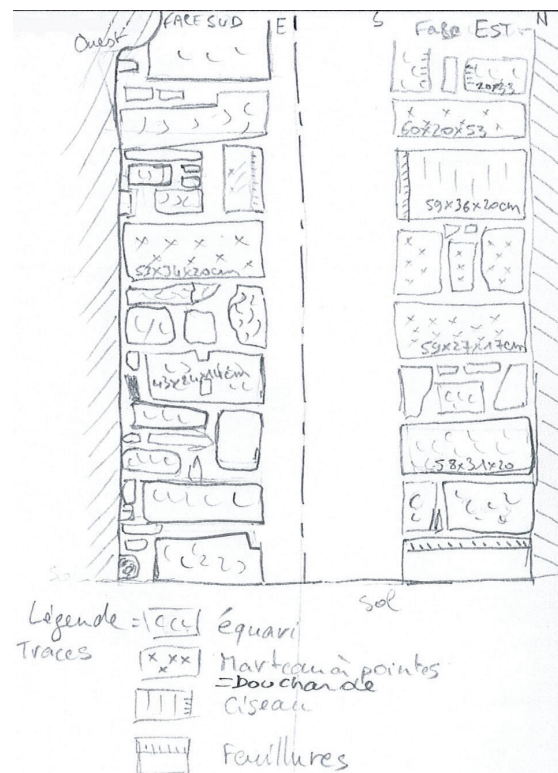 Ouest FACE SUD E S FACE EST N
20x33
60x20x53
59x36x20cm
52x34x20cm
59x27x17cm
43x24x14cm
58x31x20
Sol
Légende = équari
Traces Marteau à pointes
=Bouchande
Ciseau
Feuillures